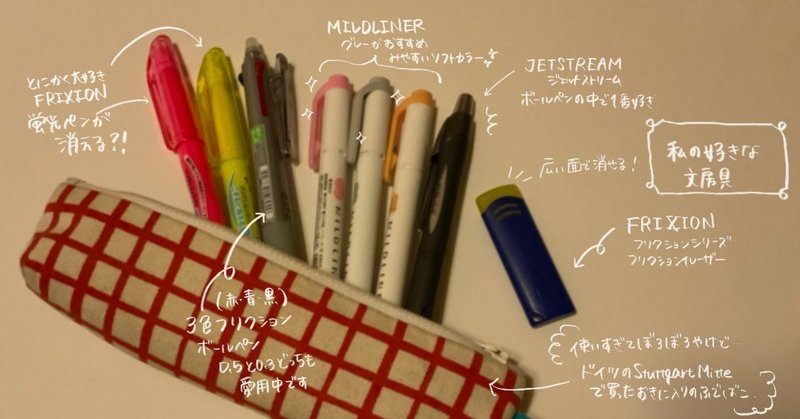 私の好きな
文房具
とにかく大好き
FRIXION
蛍光ペンが
消える?!
MILDLINER
グレーがおすすめ
みやすいソフトカラー
JETSTREAM
ジェットストリーム
ボールペンの中で1番好き
広い面で消せる!
FRIXION
フリクションシリーズ
フリクションイレーザー
(赤・青・黒)
3色フリクション
ボールペン
0.5と0.3どっちも
愛用中です
使いすぎてぼろぼろやけど
ドイツのStuttgart Mitte
で買たおきに入りのふでばこ
MILDLINE
MILDLINE
MILDLINE